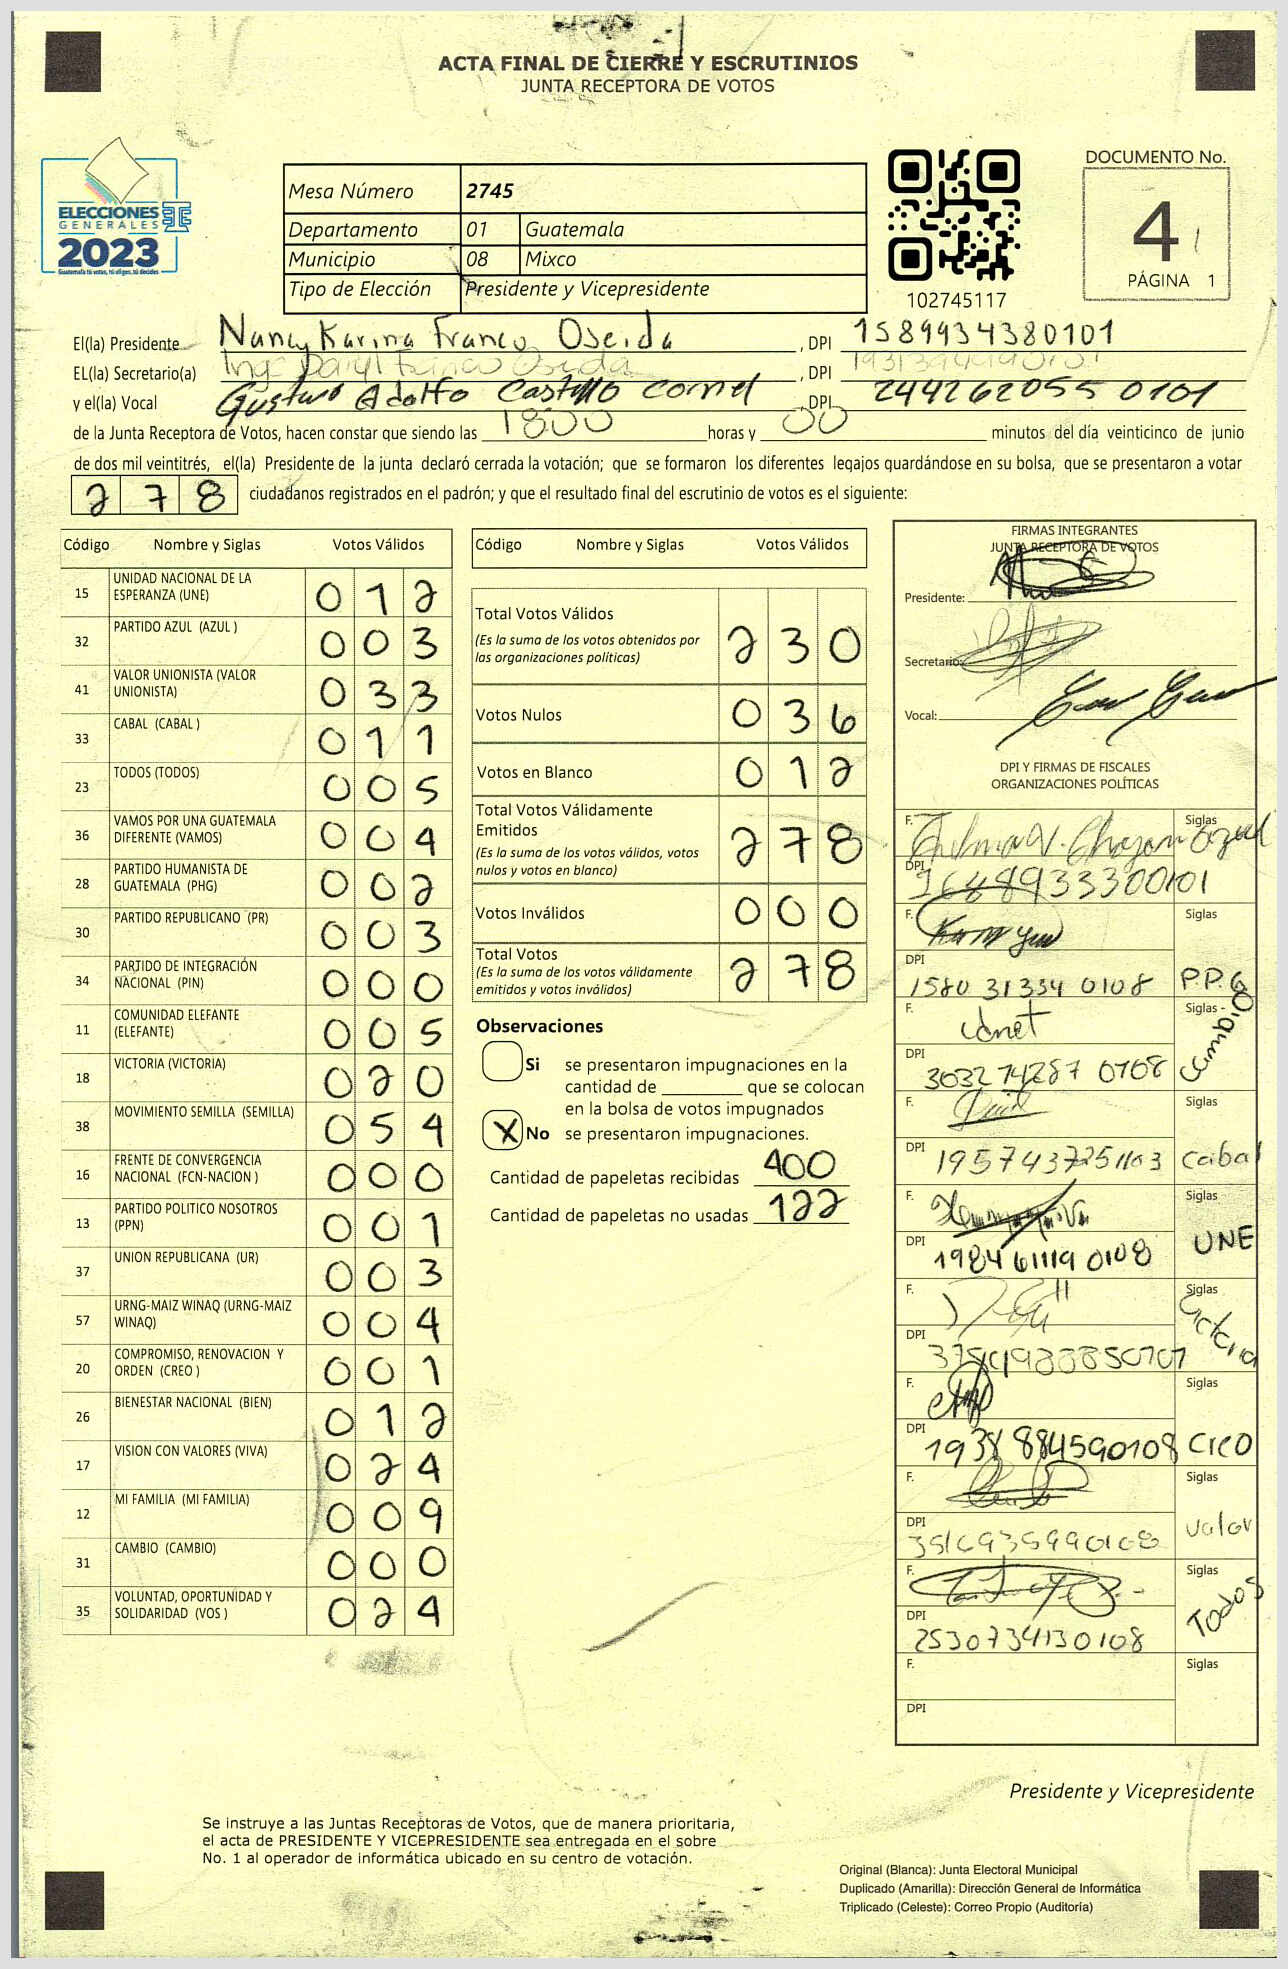 ACTA FINAL DE CIERRE Y ESCRUTINIOS
JUNTA RECEPTORA DE VOTOS
ELECCIONES
GENERALES
2023
Guatemala tú votas, tú eliges, tú decides
Mesa Número 2745
Departamento 01 Guatemala
Municipio 08 Mixco
Tipo de Elección Presidente y Vicepresidente
102745117
DOCUMENTO No.
4
PÁGINA 1
El(la) Presidente Nancy Karina Franco Oseida, DPI 1589934380101
EL(la) Secretario(a) Franco Oseida, DPI
y el(la) Vocal Gustavo Adolfo Castillo Cornel, DPI 2442620550101
de la Junta Receptora de Votos, hacen constar que siendo las 1800 horas y 00 minutos del día veinticinco de junio
de dos mil veintitrés, el(la) Presidente de la junta declaró cerrada la votación; que se formaron los diferentes legajos guardándose en su bolsa, que se presentaron a votar
278 ciudadanos registrados en el padrón; y que el resultado final del escrutinio de votos es el siguiente:
Código Nombre y Siglas Votos Válidos
15 UNIDAD NACIONAL DE LA ESPERANZA (UNE) 012
32 PARTIDO AZUL (AZUL ) 003
41 VALOR UNIONISTA (VALOR UNIONISTA) 033
33 CABAL (CABAL ) 011
23 TODOS (TODOS) 005
36 VAMOS POR UNA GUATEMALA DIFERENTE (VAMOS) 004
28 PARTIDO HUMANISTA DE GUATEMALA (PHG) 002
30 PARTIDO REPUBLICANO (PR) 003
34 PARTIDO DE INTEGRACIÓN NACIONAL (PIN) 000
11 COMUNIDAD ELEFANTE (ELEFANTE) 005
18 VICTORIA (VICTORIA) 020
38 MOVIMIENTO SEMILLA (SEMILLA) 054
16 FRENTE DE CONVERGENCIA NACIONAL (FCN-NACION ) 000
13 PARTIDO POLITICO NOSOTROS (PPN) 001
37 UNION REPUBLICANA (UR) 003
57 URNG-MAIZ WINAQ (URNG-MAIZ WINAQ) 004
20 COMPROMISO, RENOVACION Y ORDEN (CREO ) 001
26 BIENESTAR NACIONAL (BIEN) 012
17 VISION CON VALORES (VIVA) 024
12 MI FAMILIA (MI FAMILIA) 009
31 CAMBIO (CAMBIO) 000
35 VOLUNTAD, OPORTUNIDAD Y SOLIDARIDAD (VOS ) 024
Código Nombre y Siglas Votos Válidos
Total Votos Válidos 230
(Es la suma de los votos obtenidos por
las organizaciones políticas)
Votos Nulos 036
Votos en Blanco 012
Total Votos Válidamente
Emitidos 278
(Es la suma de los votos válidos, votos
nulos y votos en blanco)
Votos Inválidos 000
Total Votos 278
(Es la suma de los votos válidamente
emitidos y votos inválidos)
Observaciones
Si se presentaron impugnaciones en la
cantidad de ________ que se colocan
en la bolsa de votos impugnados
X No se presentaron impugnaciones.
Cantidad de papeletas recibidas 400
Cantidad de papeletas no usadas 122
FIRMAS INTEGRANTES
JUNTA RECEPTORA DE VOTOS
Presidente:
Secretario:
Vocal:
DPI Y FIRMAS DE FISCALES
ORGANIZACIONES POLÍTICAS
F. Siglas azul
DPI 1688933300101
F. Siglas
DPI 1580 31334 0108 P.P.G
F. Janet Siglas
DPI 303274287 0108
F. Siglas
DPI 1957437251103 Cabal
F. Siglas
DPI 1984611190108 UNE
F. Siglas Victoria
DPI
F. Siglas
DPI 1938 884590108 Creo
F. Siglas
DPI 3516935990108 Valor
F. Siglas Todos
DPI 2530734130108
F. Siglas
DPI
Presidente y Vicepresidente
Se instruye a las Juntas Receptoras de Votos, que de manera prioritaria,
el acta de PRESIDENTE Y VICEPRESIDENTE sea entregada en el sobre
No. 1 al operador de informática ubicado en su centro de votación.
Original (Blanca): Junta Electoral Municipal
Duplicado (Amarilla): Dirección General de Informática
Triplicado (Celeste): Correo Propio (Auditoría)